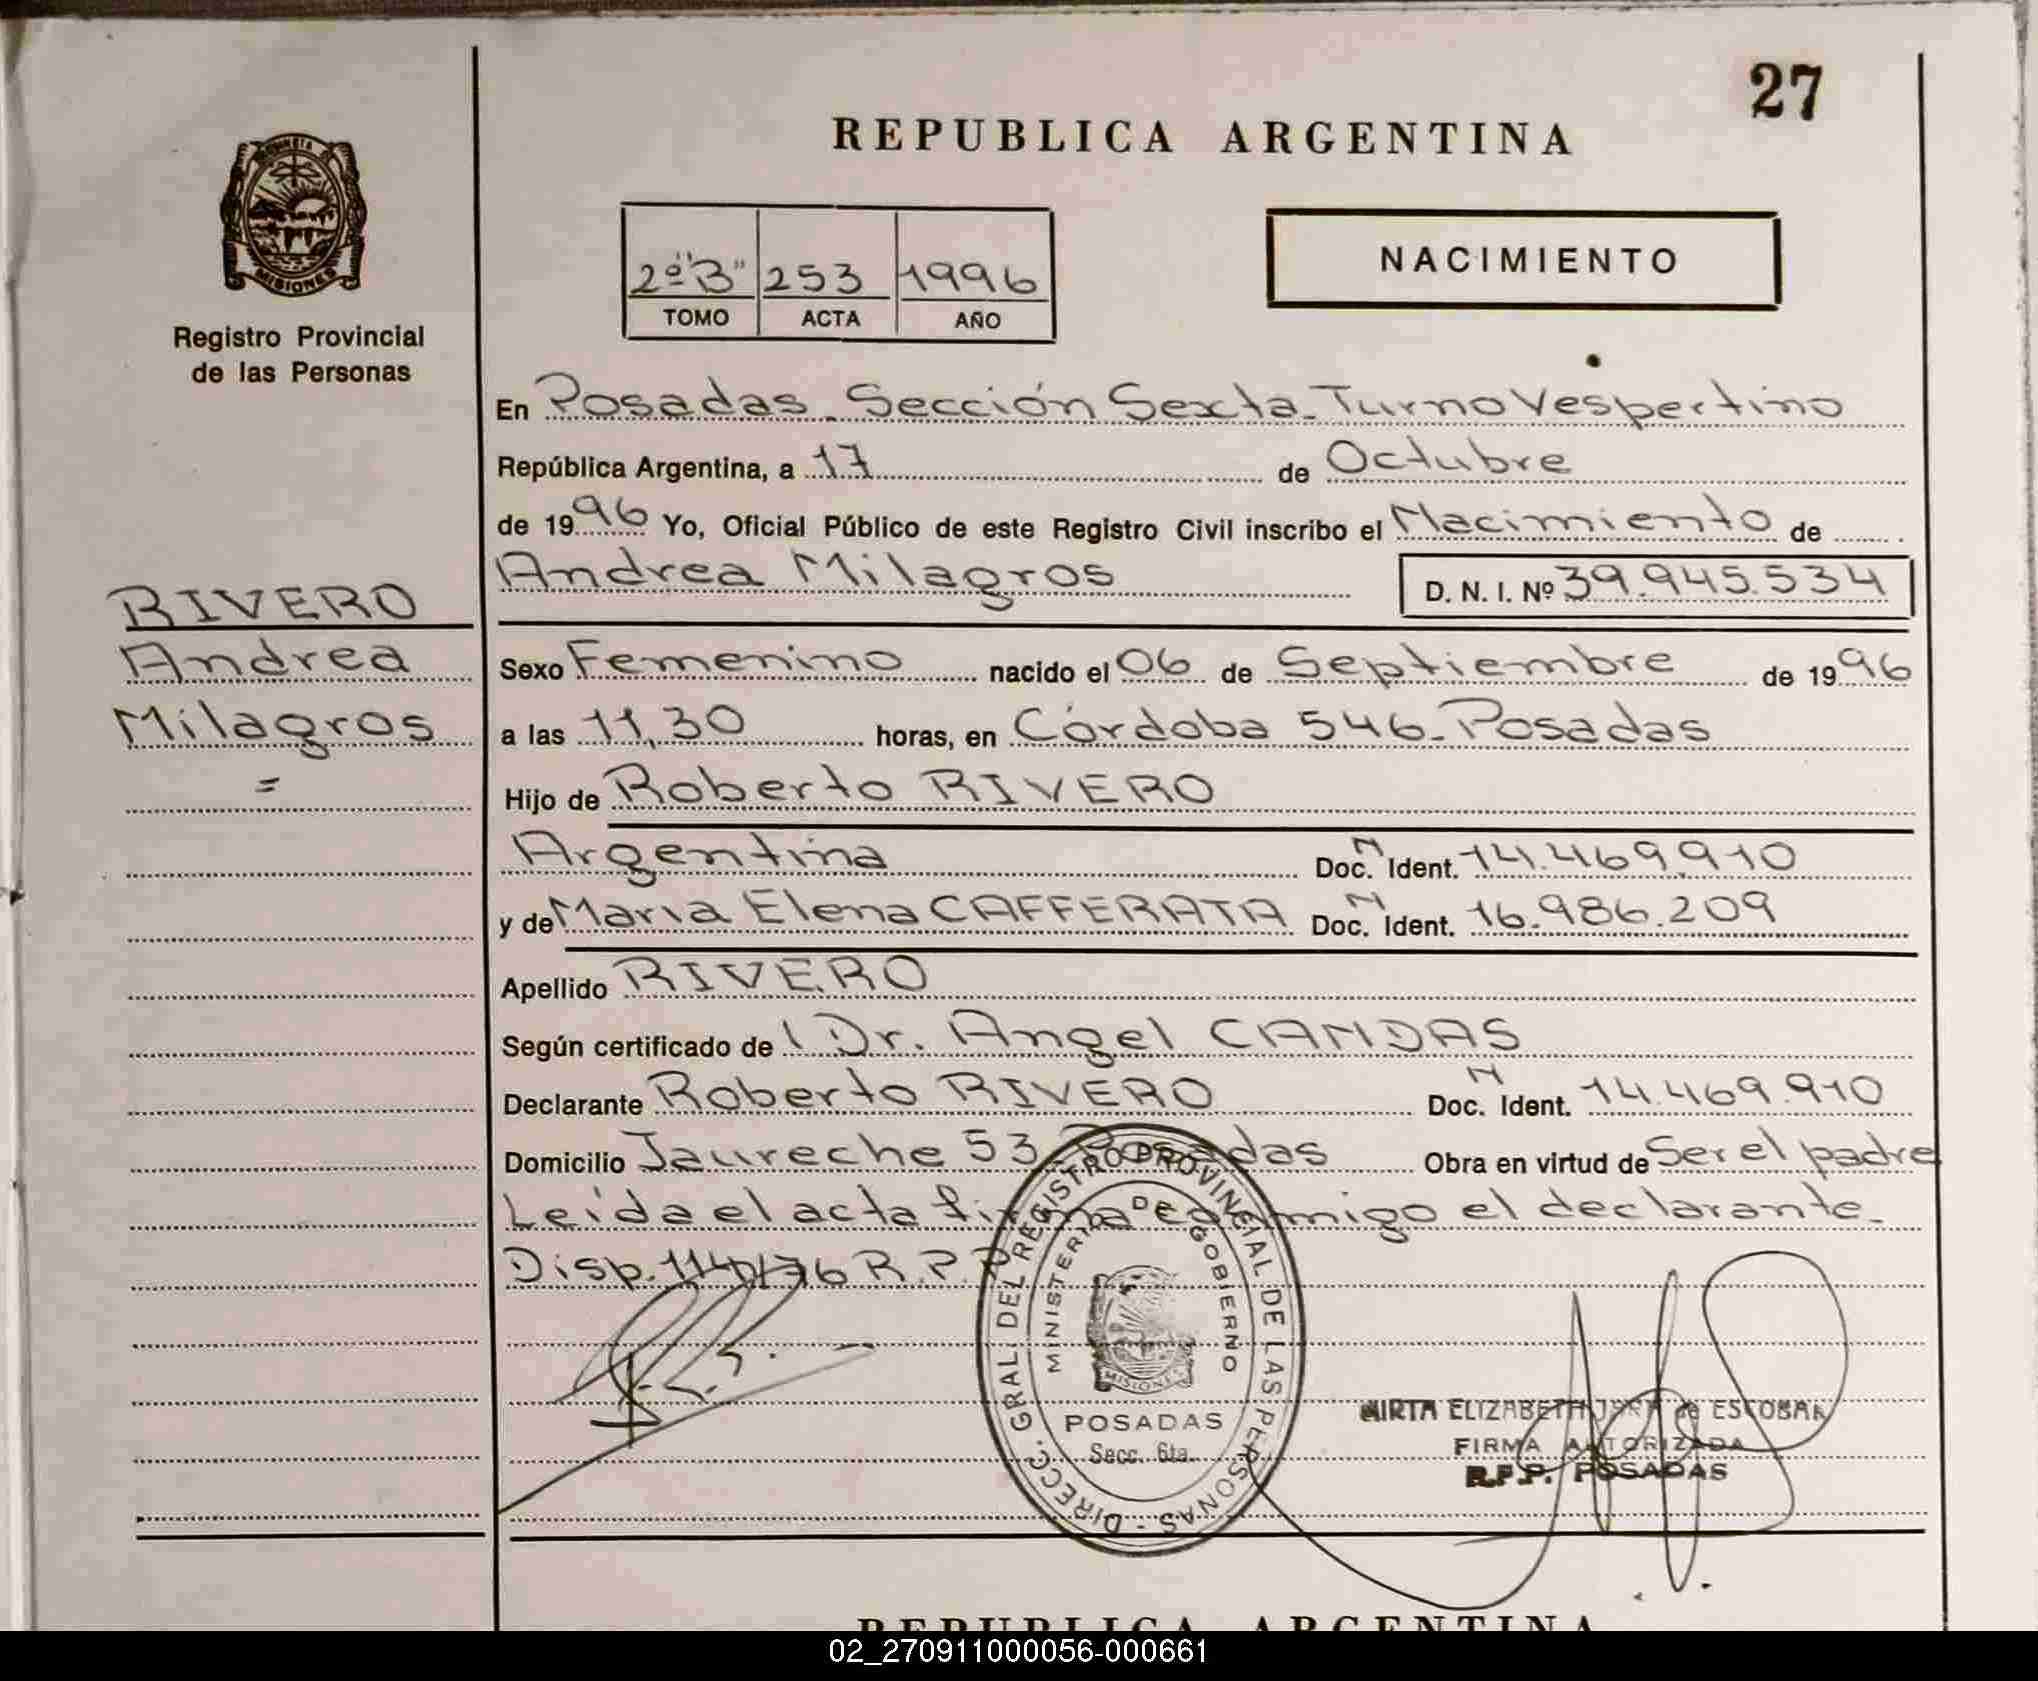 27
REPUBLICA ARGENTINA
MISIONES
Registro Provincial
de las Personas
2º "B" 253 1996
TOMO ACTA AÑO
NACIMIENTO
En Posadas - Sección Sexta - Turno Vespertino
República Argentina, a 17 de Octubre
de 1996 Yo, Oficial Público de este Registro Civil inscribo el Nacimiento de
Andrea Milagros D. N. I. Nº 39.945.534
RIVERO
Andrea
Milagros
=
Sexo Femenino nacido el 06 de Septiembre de 1996
a las 11,30 horas, en Córdoba 546 - Posadas
Hijo de Roberto RIVERO
Argentina Doc. N Ident. 14.469.910
y de María Elena CAFFERATA Doc. N Ident. 16.986.209
Apellido RIVERO
Según certificado de l Dr. Angel CANDAS
Declarante Roberto RIVERO Doc. N Ident. 14.469.910
Domicilio Jaureche 53 Posadas Obra en virtud de Ser el padre
Leída el acta firma conmigo el declarante -
Disp. R.P.P
DIRECC. GRAL DEL REGISTRO PROVINCIAL DE LAS PERSONAS -
MINISTERIO DE GOBIERNO
MISIONES
POSADAS
Secc. 6ta.
MIRTA ELIZABETH JARA de ESCOBAR
FIRMA AUTORIZADA
R.P.P. POSADAS
REPUBLICA ARGENTINA
02_270911000056-000661